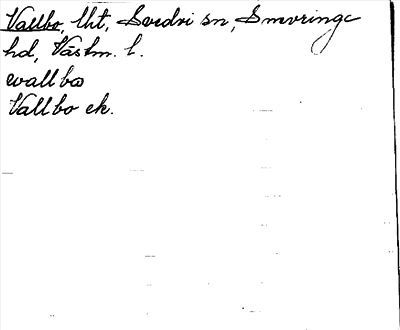 Vallbo, lht, Svedvi sn, Snevringe
hd, Västm. l.
wallbo
Vallbo ek.